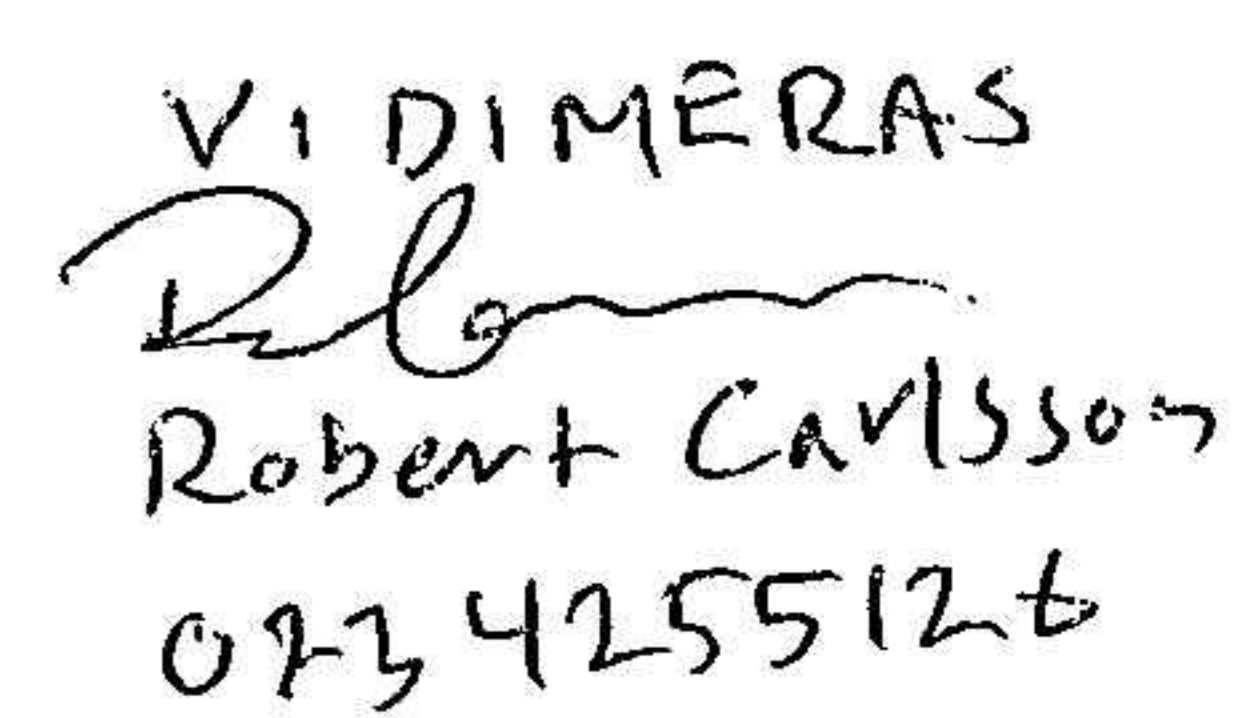 VIDIMERAS
Robert Carlsson
073 4255126